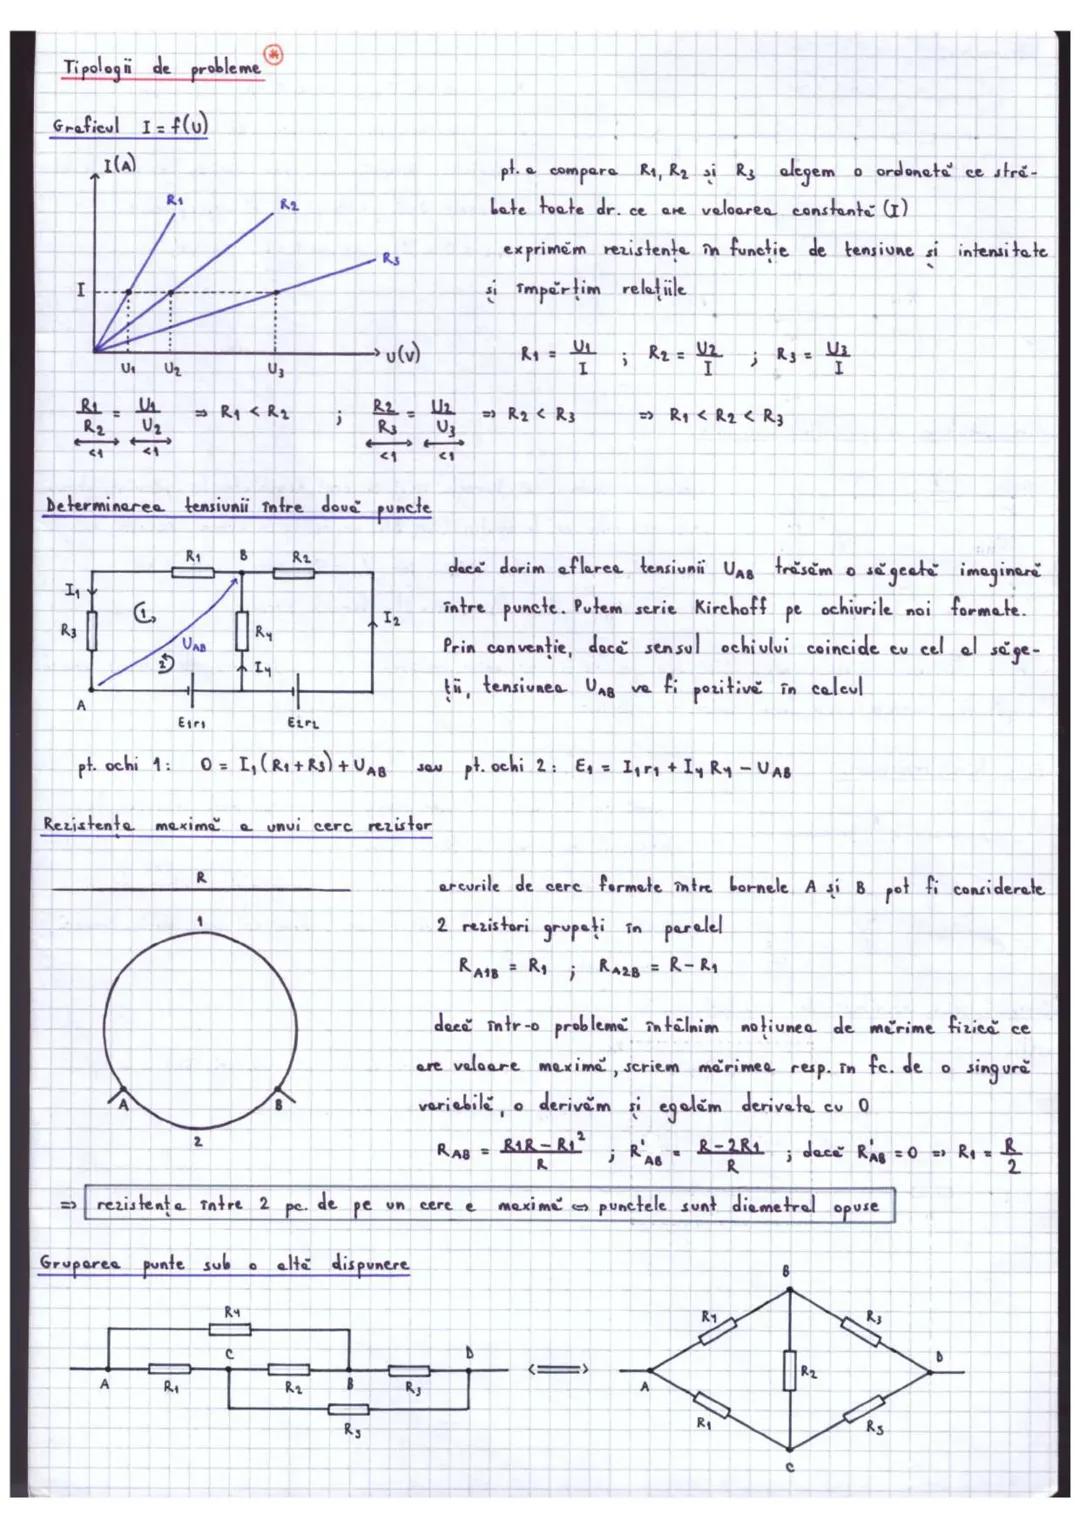 Tipologii de probleme *
Graficul I = f(U)
I(A)
R1
R2
R3
I
U(V)
U1 U2 U3
pt. a compara R1, R2 și R3 alegem o ordonată ce stră-
bate toate dr. ce are valoarea constantă (I)
exprimăm rezistența în funcție de tensiune și intensitate
și împărțim relațiile
R1 = U1/I ; R2 = U2/I ; R3 = U3/I
R1/R2 = U1/U2 => R1 < R2 ; R2/R3 = U2/U3 => R2 < R3 => R1 < R2 < R3
<1 <1 <1 <1
Determinarea tensiunii între două puncte
R1 B R2
I1
1
I2
R3
UAB
R4
2
I4
A
E1r1 E2r2
dacă dorim aflarea tensiunii UAB trăsăm o săgeată imaginară
între puncte. Putem scrie Kirchoff pe ochiurile noi formate.
Prin convenție, dacă sensul ochiului coincide cu cel al săge-
ții, tensiunea UAB va fi pozitivă în calcul
pt. ochi 1: 0 = I1(R1+R3) + UAB sau pt. ochi 2: E1 = I1r1 + I4R4 - UAB
Rezistența maximă a unui cerc rezistor
R
1
A
B
2
arcurile de cerc formate între bornele A și B pot fi considerate
2 rezistori grupați în paralel
RA1B = R1 ; RA2B = R - R1
dacă într-o problemă întâlnim noțiunea de mărime fizică ce
are valoare maximă, scriem mărimea resp. în fc. de o singură
variabilă, o derivăm și egalăm derivata cu 0
RAB = R1R - R1²/R ; R'AB = R - 2R1/R ; dacă R'AB = 0 => R1 = R/2
=> rezistența între 2 pc. de pe un cerc e maximă <=> punctele sunt diametral opuse
Gruparea punte sub o altă dispunere
R4
C
D
A R1 R2 B R3
R5
<=>
B
R4
R3
A
R2
D
R1
R5
C